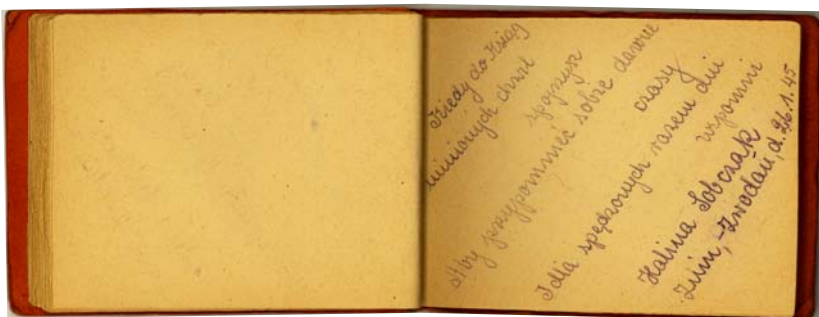 Kiedy do Ksiąg
minionych chwil
spojrzysz
Aby przypomnieć sobie dawne
czasy
I dla spędzonych razem dni
wspomni
Halina Sobczak
Żnin,-Zrodau, d. 26.1.45